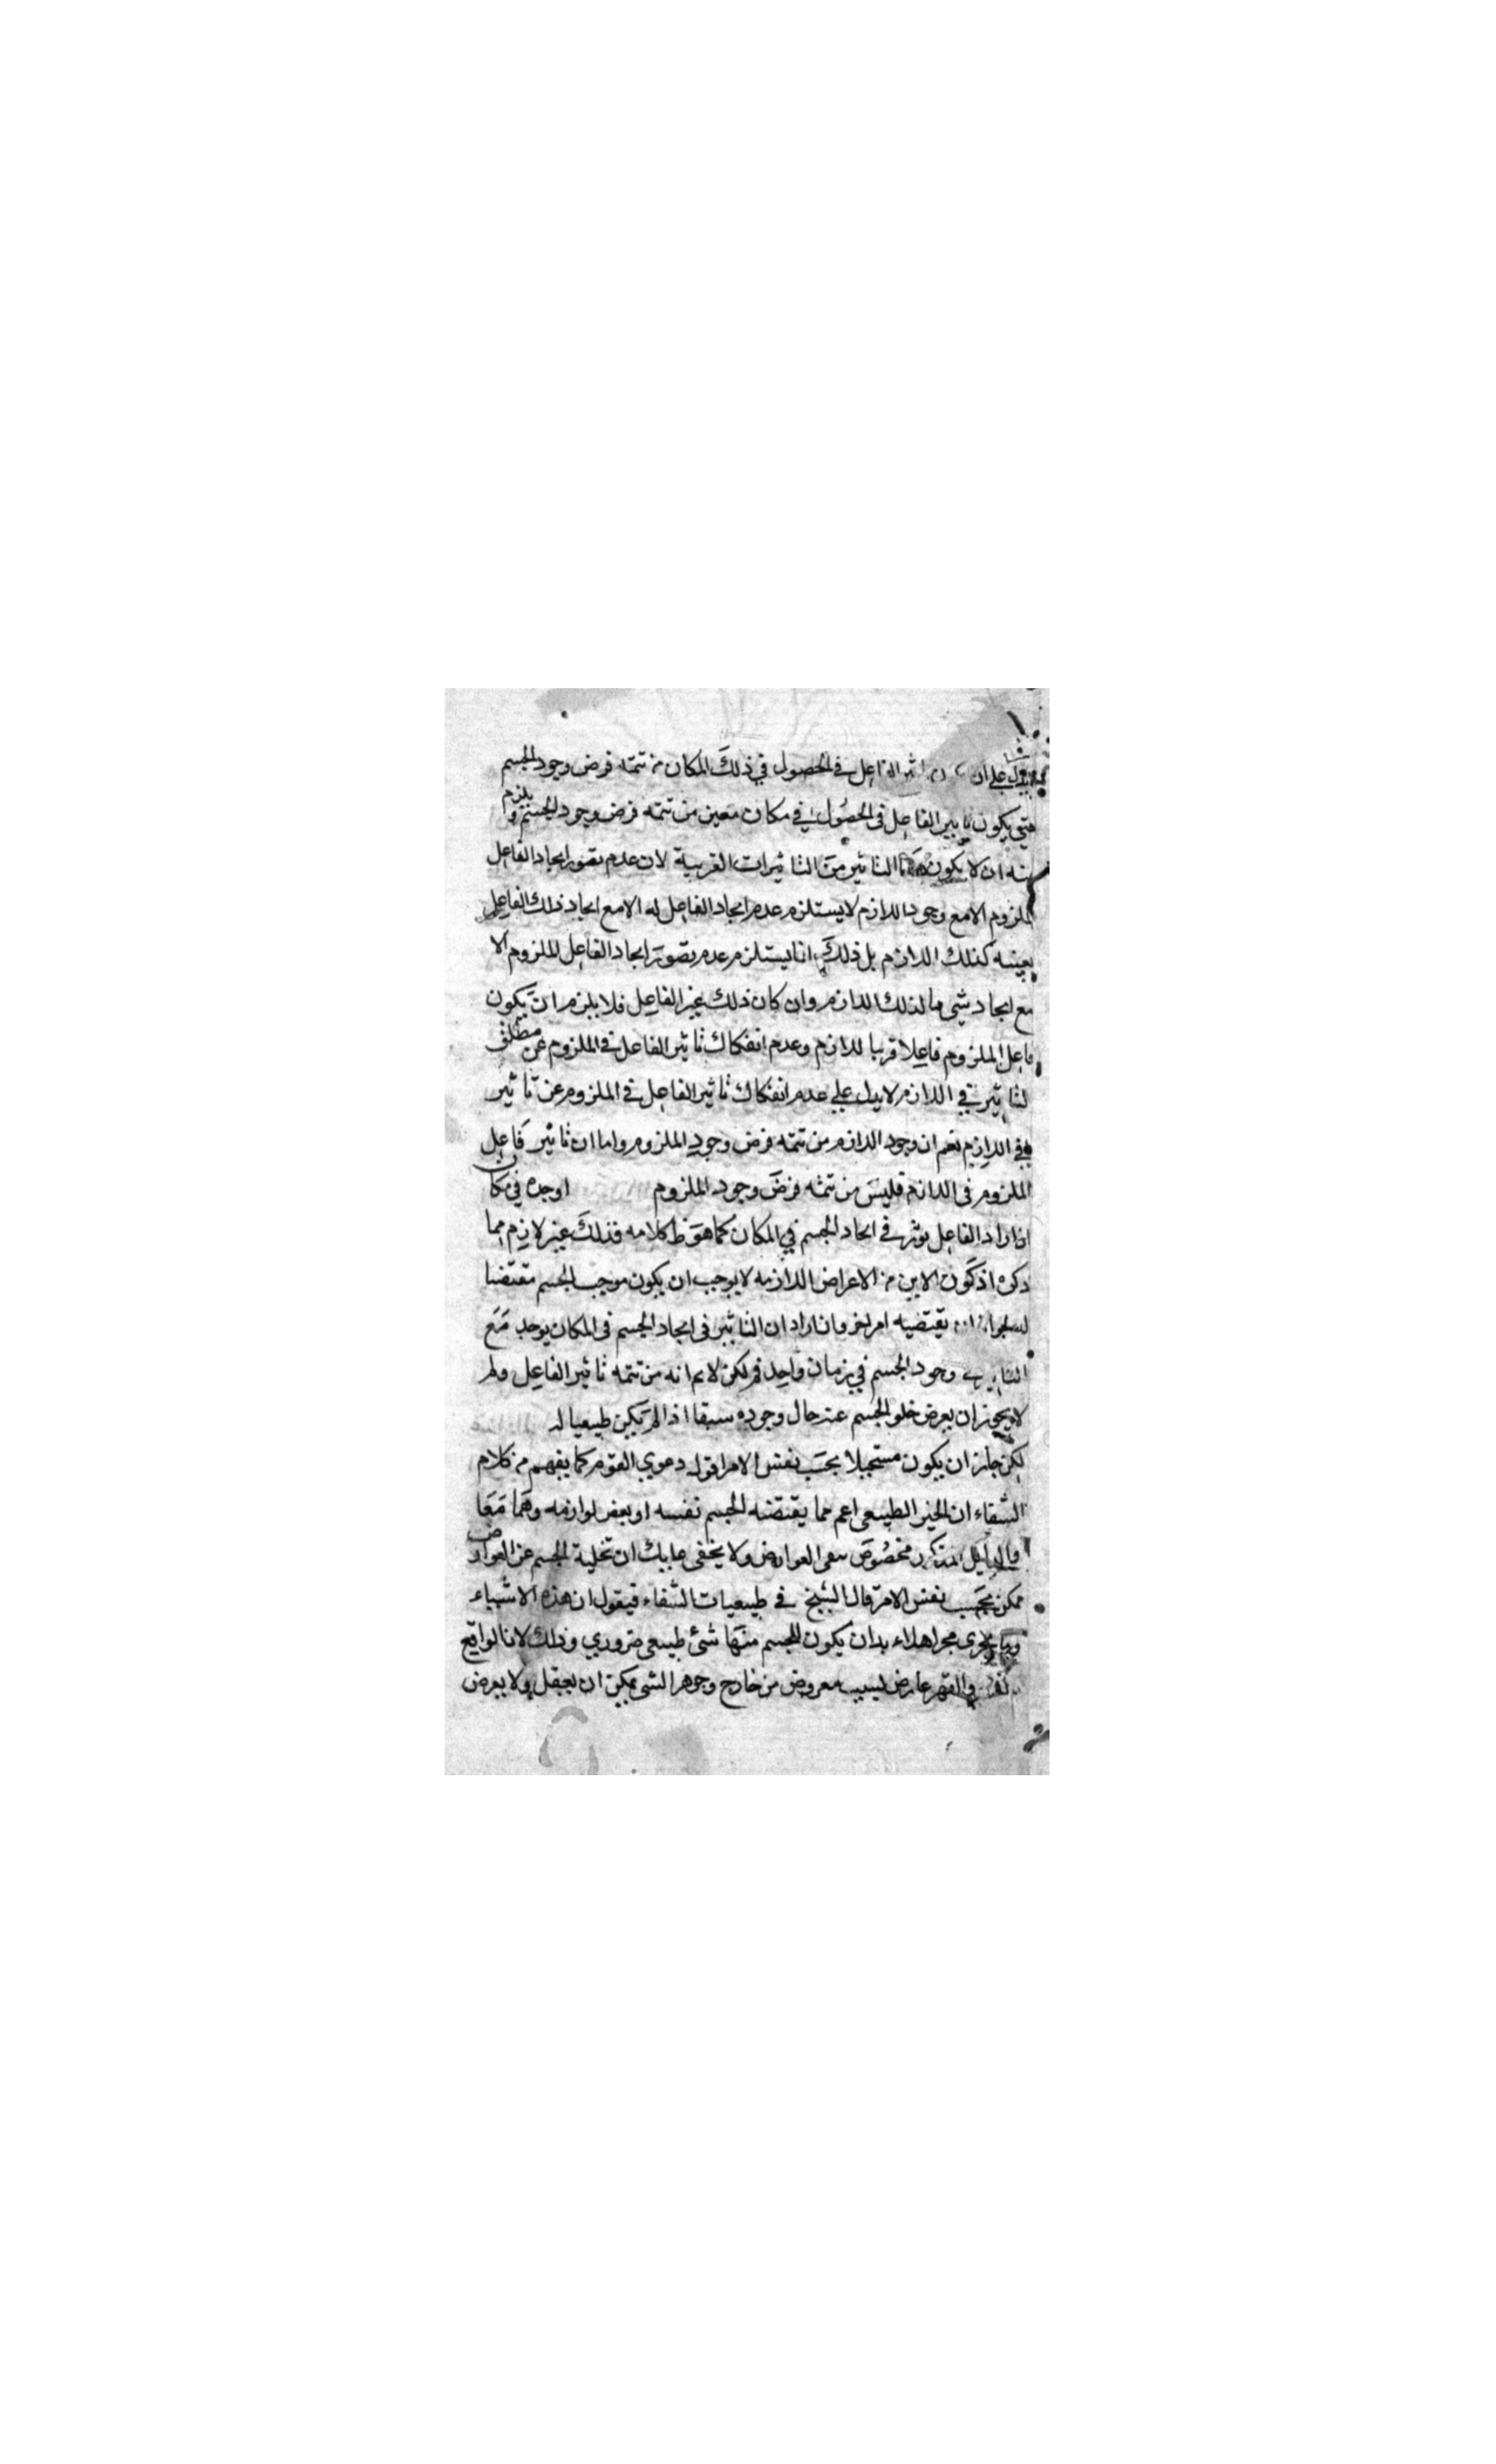 على ان الفاعل في الحصول في ذلك المكان من تتمة فرض وجود الجسم
حتى يكون تاثير الفاعل فى الحصول في مكان معين من تتمه فرض وجود الجسم و يلزم
منه ان لا يكون هذا التاثير من التاثيرات الغريبة لان عدم تصور ايجاد الفاعل
لملزوم الا مع وجود اللازم لا يستلزم عدم ايجاد الفاعل له الا مع ايجاد ذلك الفاعل
بعينه كذلك اللازم بل ذلك انما يستلزم عدم تصور ايجاد الفاعل للملزوم الا
مع ايجاد شي ما لذلك اللازم وان كان ذلك غير الفاعل فلا يلزم ان يكون
فاعل الملزوم فاعلا قريبا للازم وعدم انفكاك تاثير الفاعل في الملزوم عن مطلق
لتاثير في اللازم لا يدل على عدم انفكاك تاثير الفاعل في الملزوم عن تاثير
في اللازم نعم ان وجود اللازم من تتمه فرض وجود الملزوم واما ان تاثير فاعل
الملزوم فى اللازم فليس من تتمه فرض وجود الملزوم اوجده في مكان
اذا راد الفاعل يوثر في ايجاد الجسم في المكان كما هو ظ كلامه فذلك غير لازم مما
ذكره اذ كون الاين من الاعراض اللازمه لا يوجب ان يكون موجب الجسم مقتضا
يقتضيه امر اخر وان اراد ان التاثير فى ايجاد الجسم فى المكان يوجد مع
التاثير في وجود الجسم في زمان واحد فم لكن لا نم انه من تتمه تاثير الفاعل ولم
لا يجوز ان يعرض خلو الجسم عنه حال وجوده سبقا اذا لم يكن طبيعيا له
لكن جاز ان يكون مستحيلا بحسب نفس الامر اقول دعوي القوم كما يفهم من كلام
الشفاء ان الحيز الطبيعى اعم مما يقتضيه الجسم نفسه او بعض لوازمه وهما معا
والدليل المذكور مخصوص ببعى العوارض ولا يخفى عليك ان تخلية الجسم عن العوارض
ممكن بحسب نفس الامر قال الشيخ في طبيعيات الشفاء فيقول ان هذه الاشياء
وما يجرى مجراها لا بد ان يكون للجسم منها شئ طبيعى ضروري وذلك لان الواقع
والقهر عارض لسبب معروض من خارج وجوهر الشي يمكن ان يعقل ولا يعرض